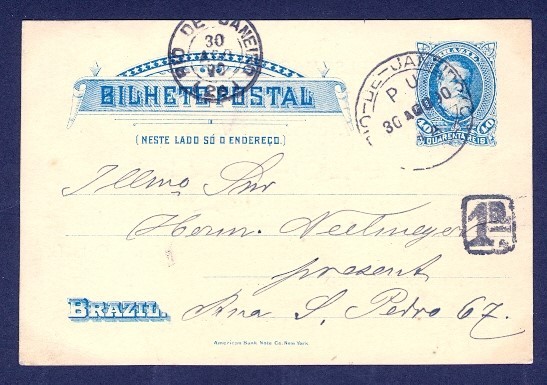 RIO DE JANEIRO
30
AGO
90
BRAZIL
RIO-DE-JANEIRO
P U
30 AGO 90
40 40
QUARENTA REIS
BILHETE POSTAL
(NESTE LADO SÓ O ENDEREÇO.)
Illmo Snr
Herm. Neetmeyer
present
1ª
BRAZIL.
Rua S. Pedro 67.
American Bank Note Co. New York